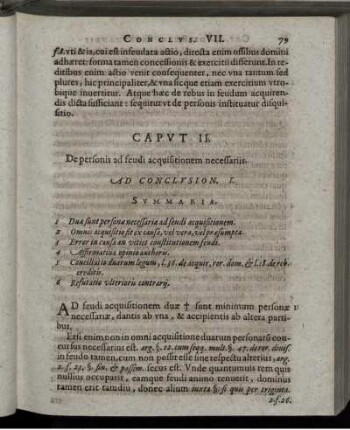 CONCLVS. VII. 79
sa, vti & is, cui est infeudata actio, directa enim ossibus domini
adhæret: forma tamen concessionis & exercitii differunt. In re-
ditibus enim actio venit consequenter, nec vna tantum sed
plures, hic principaliter, & vna sicque etiam exercitium vtro-
bique inuertitur. Atque hæc de rebus in feudum acquiren-
dis dicta sufficiant: sequitur vt de personis instituatur disqui-
sitio.
CAPVT II.
De personis ad feudi acquisitionem necessariis.
AD CONCLVSION. I.
SVMMARIA.
1 Duæ sunt personæ necessariæ ad feudi acquisitionem.
2 Omnis acquisitio fit ex causa, vel vera, vel præsumpta.
3 Error in causa an vitiet constitutionem feudi.
4 Affirmatiua opinio authoris.
5 Conciliatio duarum legum, l. 36. de acquir. rer. dom. & l. 18. de reb.
creditis.
6 Refutatio vlterioris contrarij.
AD feudi acquisitionem duæ † sunt minimum personæ 1
necessariæ, dantis ab vna, & accipientis ab altera parti-
bus.
Etsi enim non in omni acquisitione duarum personarū con-
cursus necessarius est. arg. §. 12. cum seqq. mult. §. 47. de rer. diuis.
in feudo tamen, cum non possit esse sine respectu alterius, arg.
2. f. 23. §. sin. & passim. secus est. Vnde quantumuis rem quis
nullius occuparit, eamque feudi animo tenuerit, dominus
tamen erit tamdiu, donec alium iuxta §. si quis per triginta.
2. f. 26.